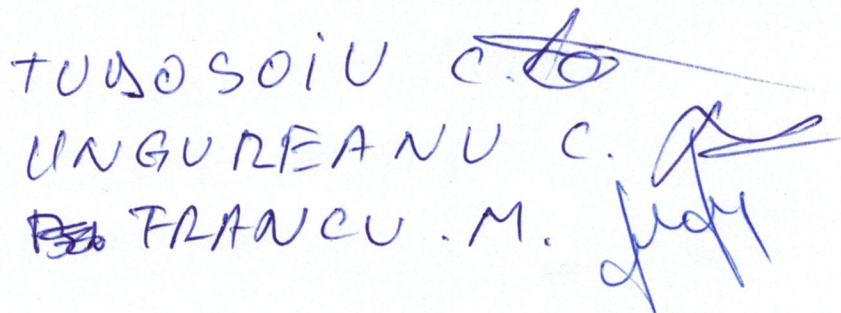 TUDOSOIU C.
UNGUREANU C.
FRANCU . M.